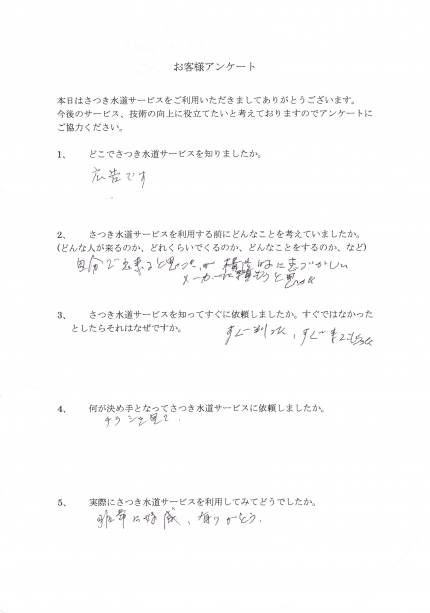 お客様アンケート
本日はさつき水道サービスをご利用いただきましてありがとうございます。
今後のサービス、技術の向上に役立てたいと考えておりますのでアンケートに
ご協力ください。
1、 どこでさつき水道サービスを知りましたか。
広告です
2、 さつき水道サービスを利用する前にどんなことを考えていましたか。
(どんな人が来るのか、どれくらいでくるのか、どんなことをするのか、など)
自分で出来ると思ったが 構造的にむづかしい
メーカーに頼もうと思った
3、 さつき水道サービスを知ってすぐに依頼しましたか。すぐではなかった
としたらそれはなぜですか。
すぐ来てもらった
4、 何が決め手となってさつき水道サービスに依頼しましたか。
チラシを見て.
5、 実際にさつき水道サービスを利用してみてどうでしたか。
非常に好感、有りがとう.